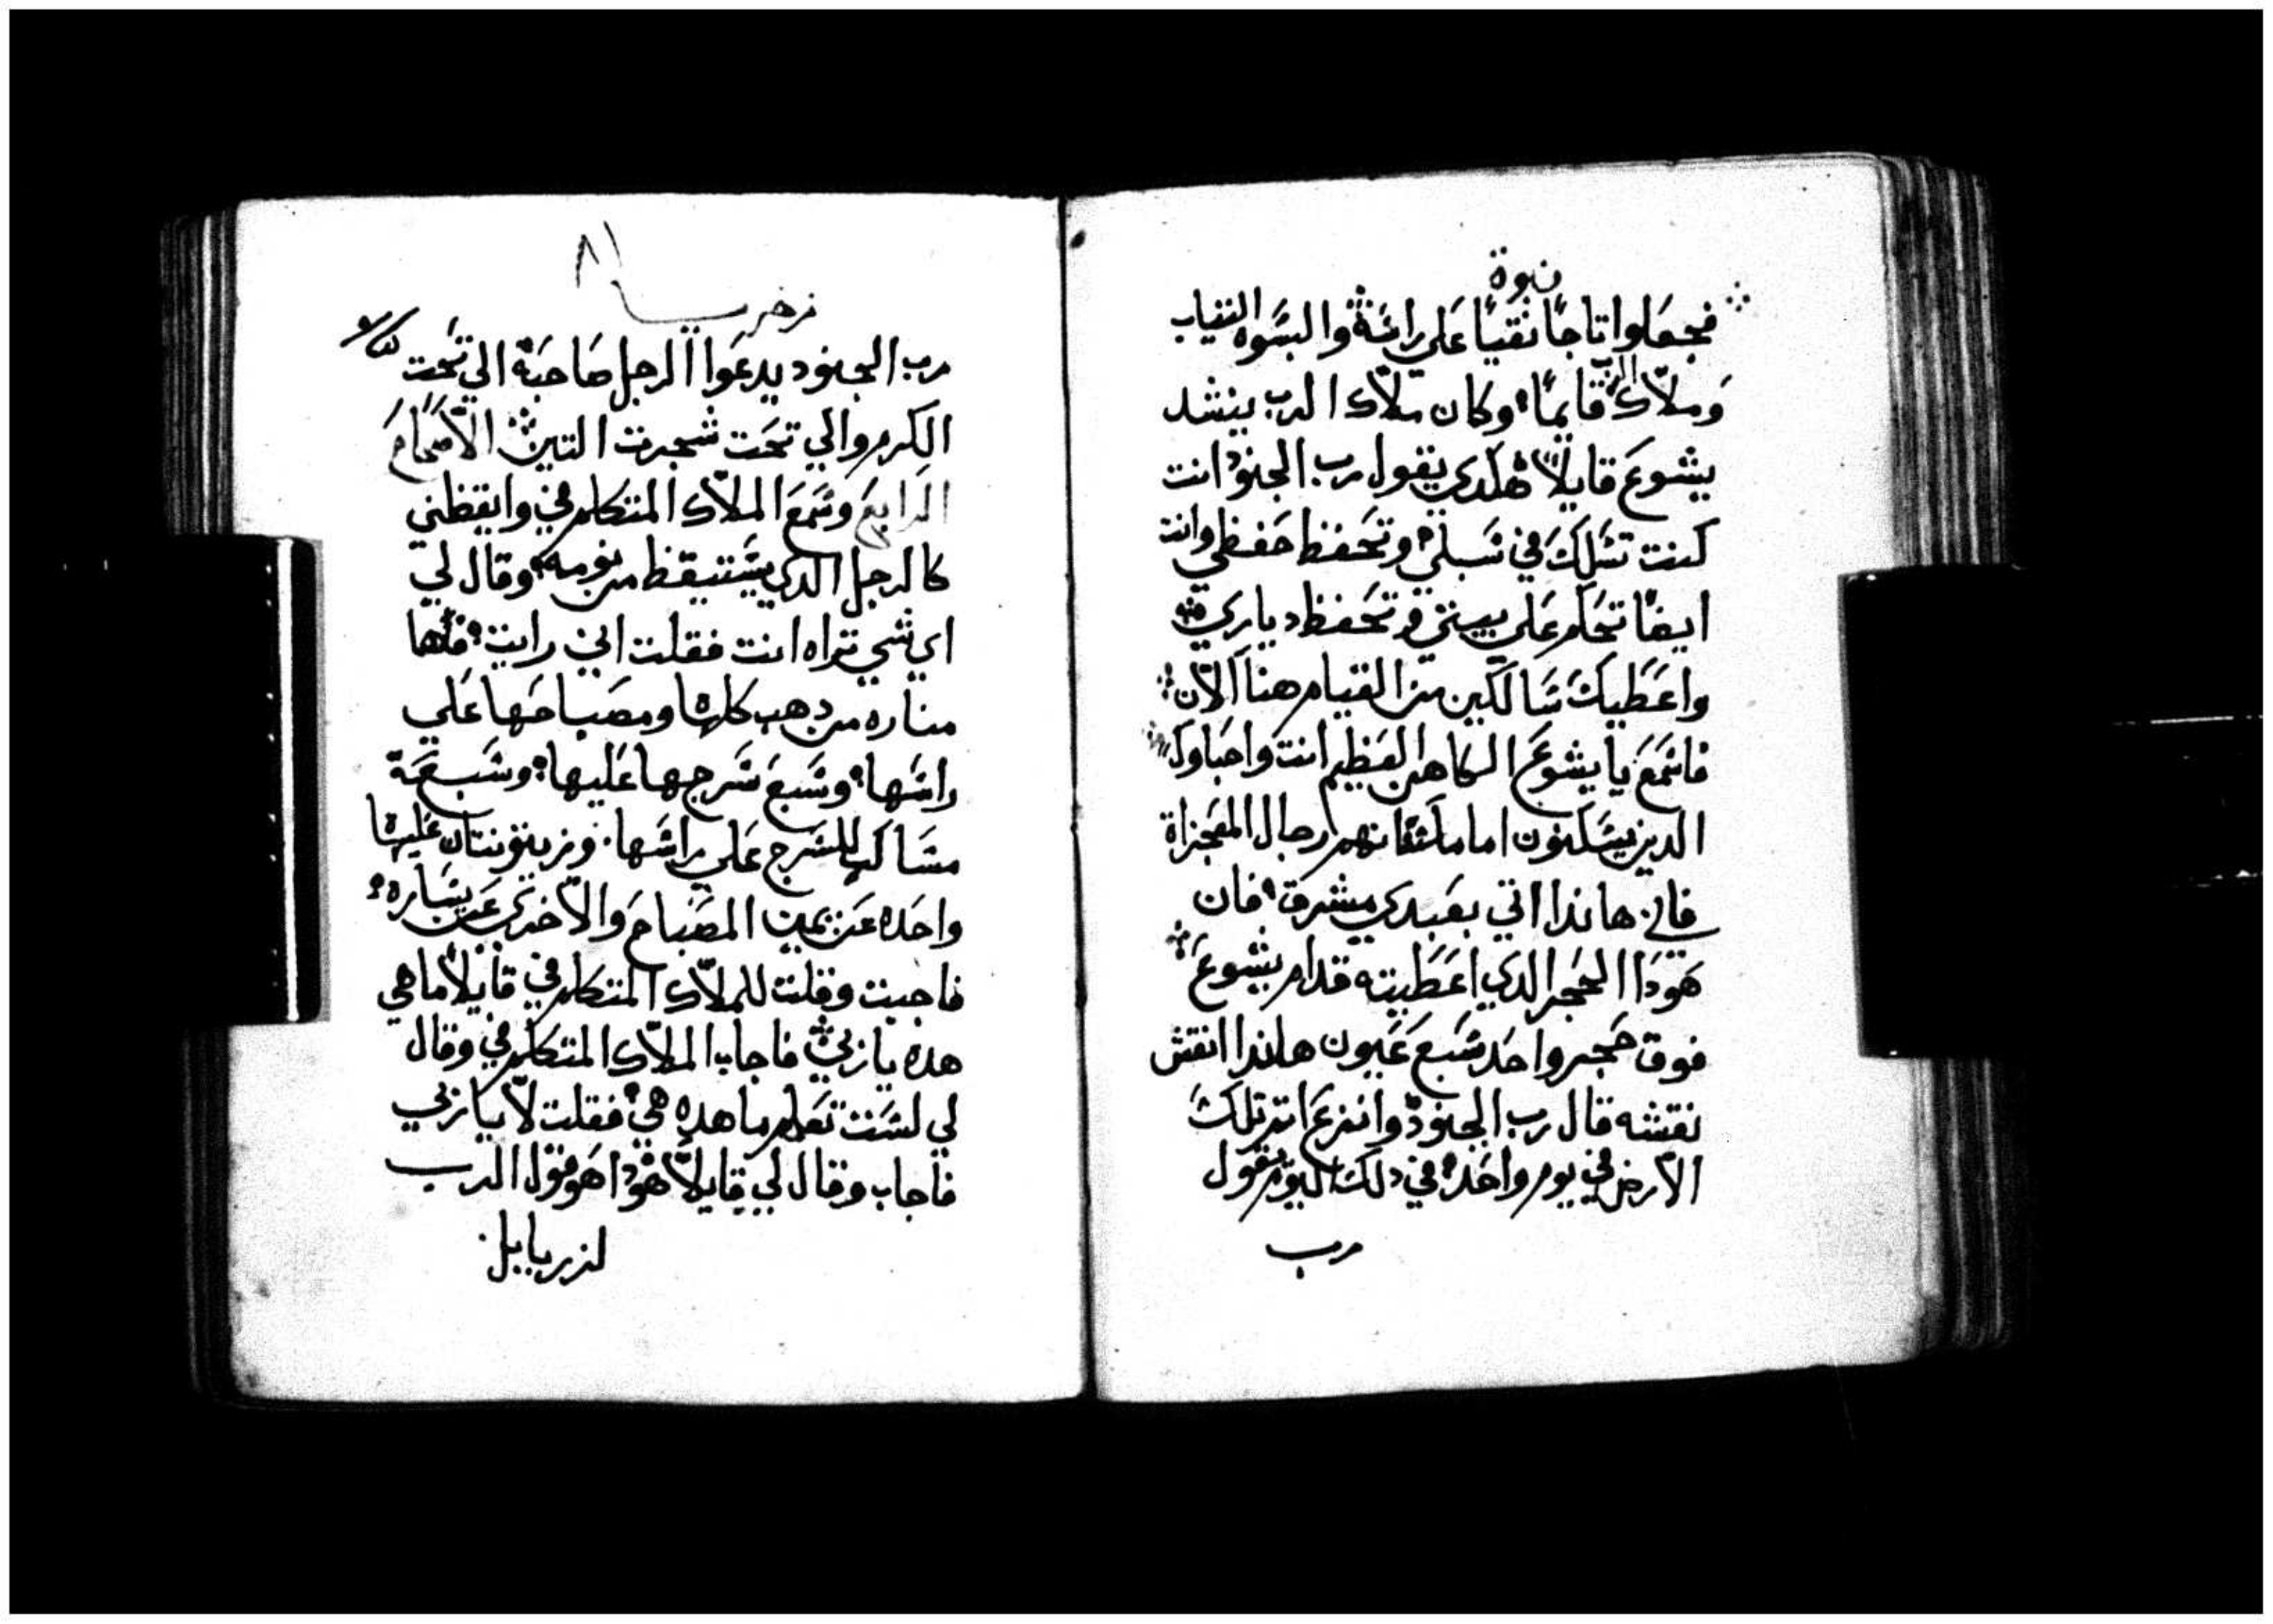 نبوة
فجعلوا تاجًا نقيًا علي راسه والبسوه الثياب
وملاك الرب قايمًا وكان ملاك الرب ينشد
يشوع قايلاً هكدي يقول رب الجنود ان انت
كنت تسلك في سبلي وتحفظ حفظي وانت
ايضًا تحكم علي بيتي وتحفظ دياري
واعطيك سالكين من القيام هنا الان
فاسمع يا يشوع الكاهن العظيم انت واحباوك
الدين يسكنون امامك فانهم رجال المعجزاة
فاني هاندا اتي بعبدي مشرق فان
هودا الحجر الدي اعطيته قدام يشوع
فوق حجر واحد سبع عيون هاندا انقش
نقشه قال رب الجنود وانزع اتم تلك
الارض في يوم واحد في دلك اليوم يقول
رب
٨١
زخريا
رب الجنود يدعوا الرجل صاحبه الي تحت
الكرم والي تحت شجرت التين الاصحاح
الرابع وسمع الملاك المتكلم في وايقظني
كالرجل الدي يستيقظ من نومه وقال لي
اي شي تراه انت فقلت اني رايت فادها
مناره من دهب كلها ومصباحها علي
راسها وسبع سرجها عليها وسبعة
مساكب للسرج علي راسها وزيتونتان عليها
واحده عن يمين المصباح والاخري عن يساره
فاجبت وقلت للملاك المتكلم في قايلاً ما هي
هده يا ربي فاجاب الملاك المتكلم في وقال
لي لست تعلم ما هده هي فقلت لا يا ربي
فاجاب وقال لي قايلاً هودا هو قول الرب
لزربابل